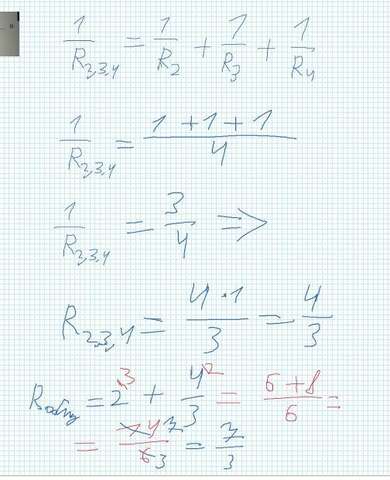 1/R2,3,4 = 1/R2 + 1/R3 + 1/R4
1/R2,3,4 = (1+1+1)/4
1/R2,3,4 = 3/4 =>
R2,3,4 = (4·1)/3 = 4/3
Rобщ = 2 3 + 4/3 2 = (6+8)/6 =
= 14/6 7/3 = 7/3